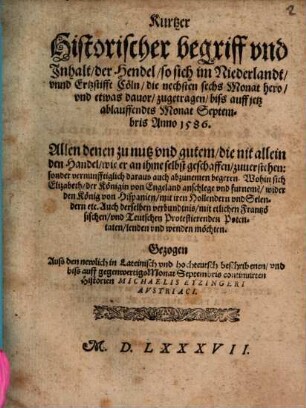 2
Kurtzer
Historischer begriff vnd
Inhalt/der Hendel/so sich im Niederlandt/
vnnd Ertzstifft Cöln/die nechsten sechs Monat hero/
vnd etwas dauor/zugetragen/biß auff jetz
ablauffendts Monat Septem-
bris Anno 1586.
Allen denen zu nutz vnd gutem/die nit allein
den Handel/wie er an ihme selbst geschaffen/zuuerstehen:
sonder vernunfftiglich daraus auch abzunemen begeren. Wohin sich
Elizabeth/der Königin von Engeland anschlege vnd furnem/ wider
den König von Hispanien/mit den Hollendern vnd Seelen-
dern etc. Auch derselben verbundtnis/mit etlichen Frantzö
sischen/vnd Teutschen Protestierenden Poten-
taten/lenden vnd wenden möchten.
Gezogen
Auß den newlich in Lateinisch vnd hochteutsch beschriebenen/vnd
biß auff gegenwertigs Monat Septembris continuirten
Historien MICHAELIS EYZINGERI
AVSTRIACI.
M. D. LXXXVII.